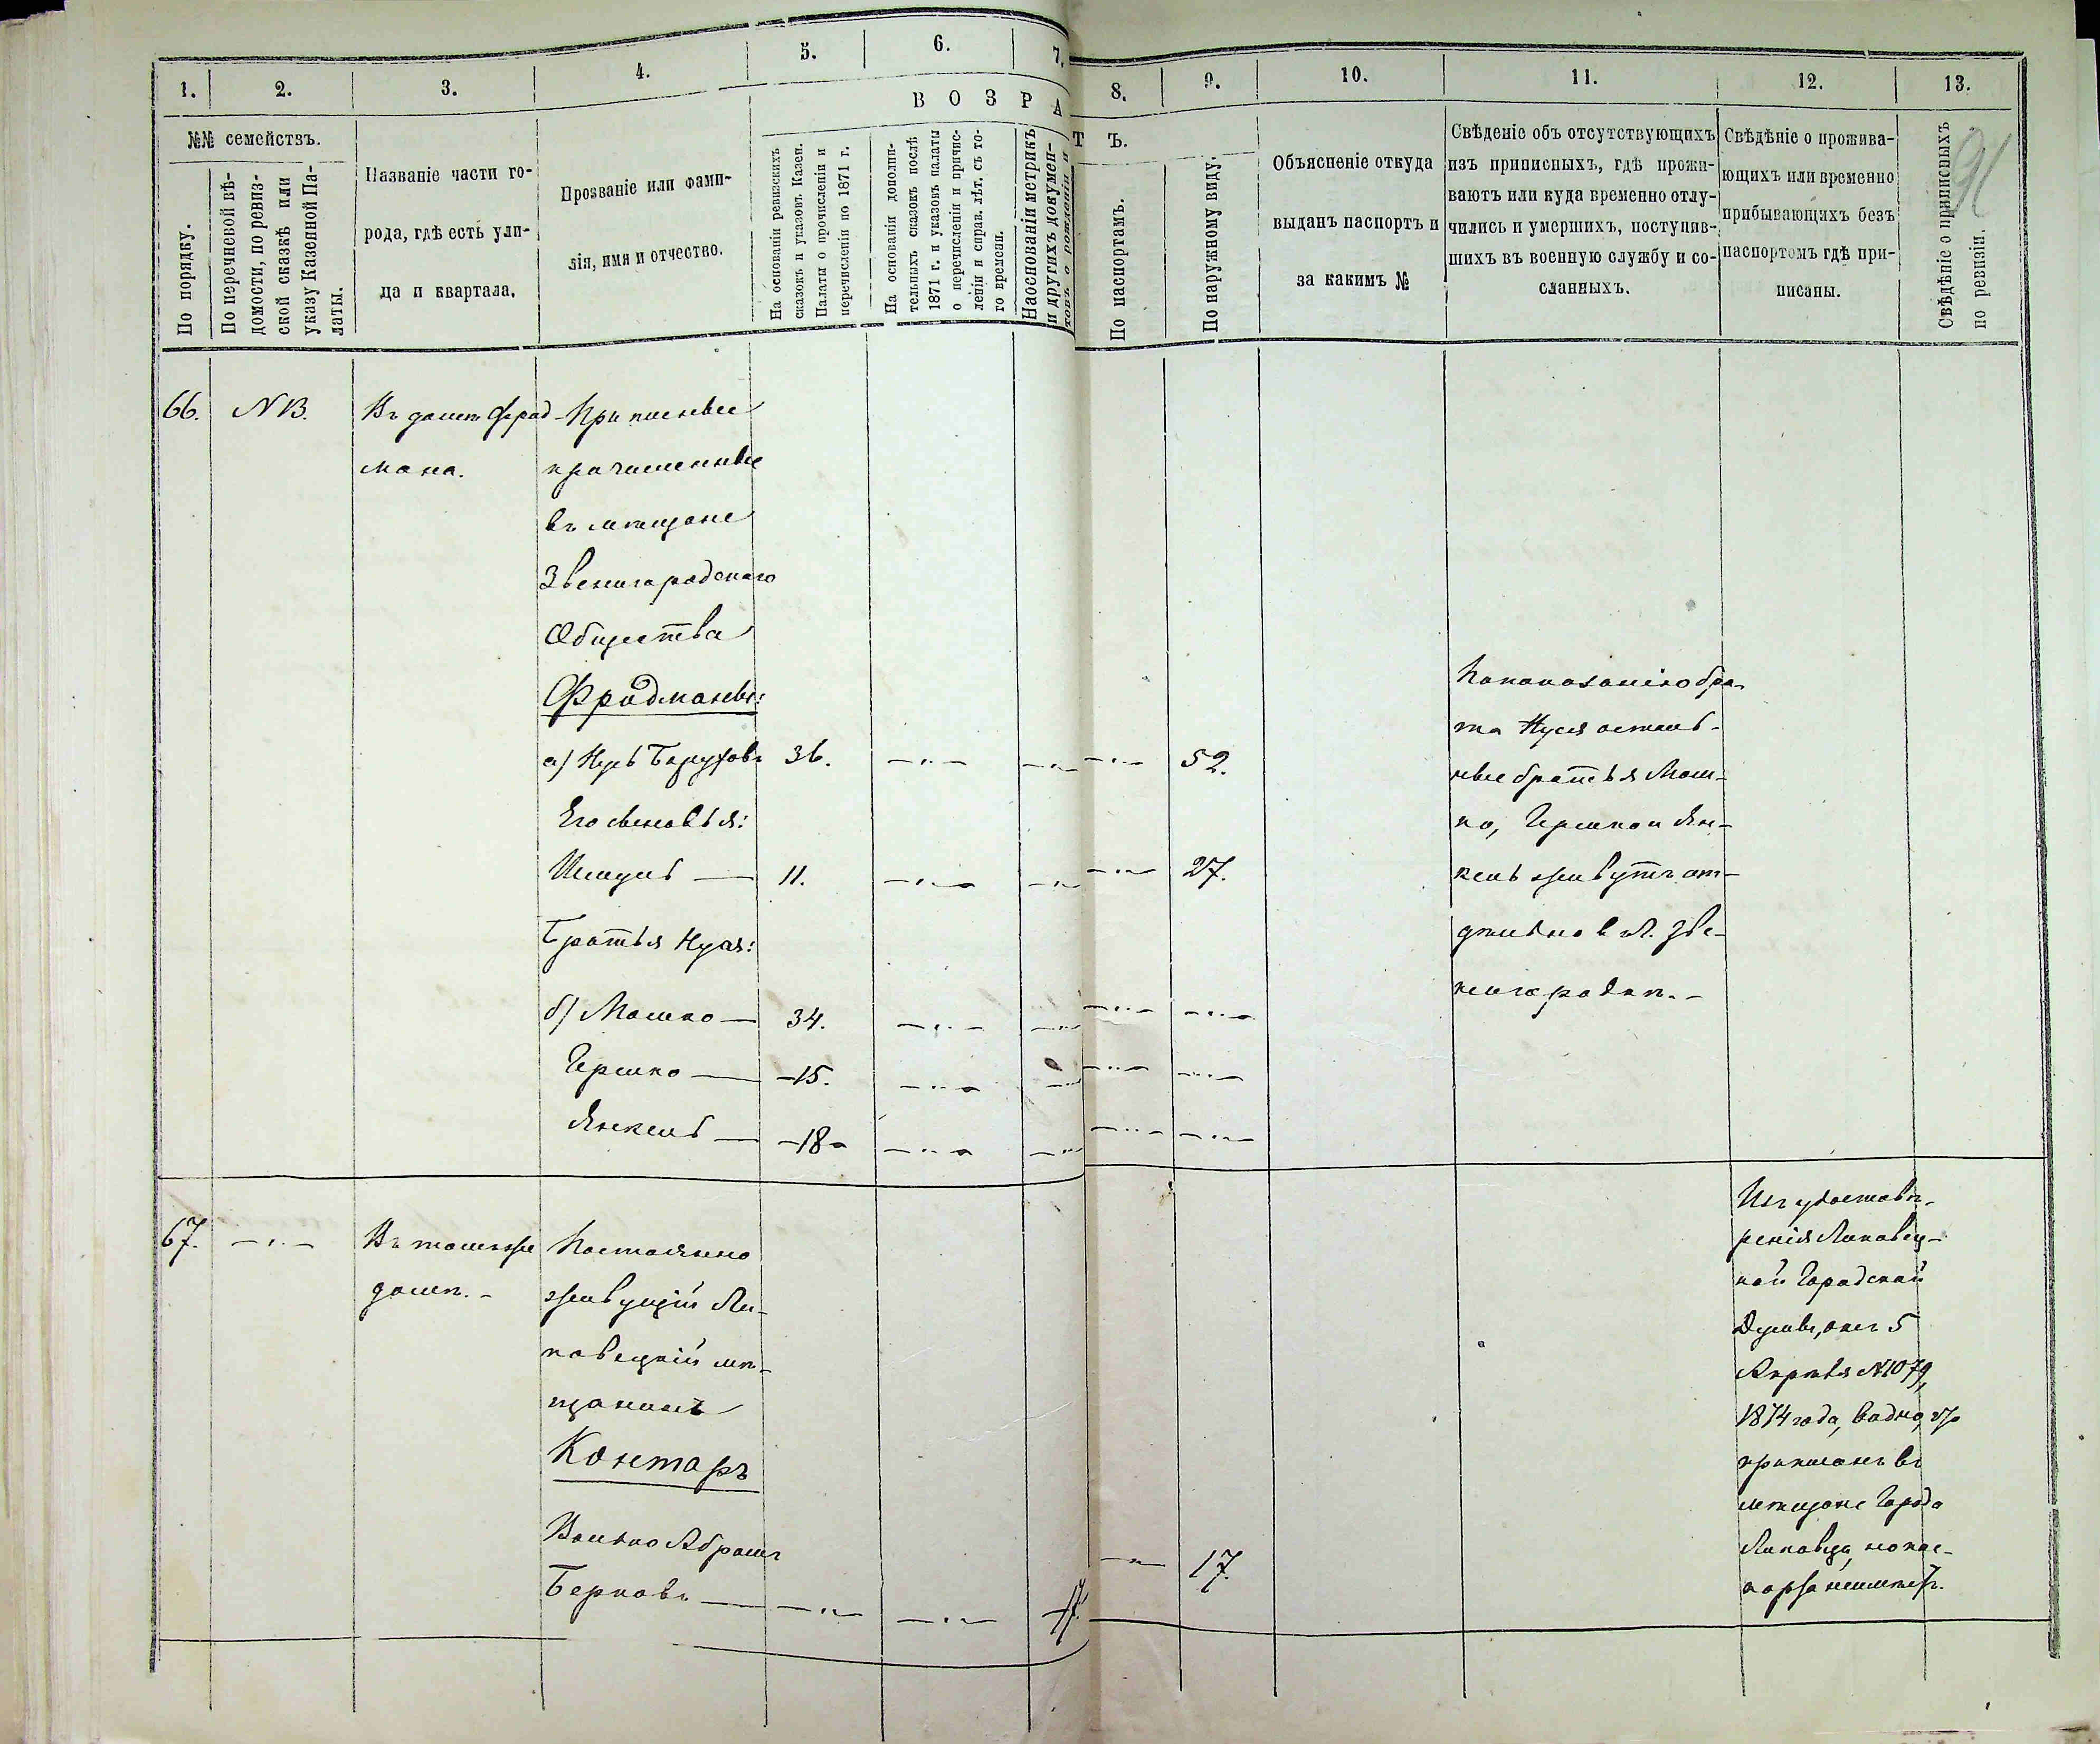 1.
2.
3.
4.
5.
6.
7.
8.
9.
10.
11.
12.
13.
91
№№ семействъ.
По порядку.
По перечневой вѣ-
домости, по ревиз-
ской сказкѣ или
указу Казенной Па-
латы.
Названіе части го-
рода, гдѣ есть ули-
ца и квартала.
Прозваніе или Фами-
лія, имя и отчество.
ВОЗРА
На основаніи ревизскихъ
сказокъ и указовъ Казен.
Палаты о прочисленіи и
перечисленіи по 1871 г.
На основаніи дополни-
тельныхъ сказокъ послѣ
1871 г. и указовъ палаты
о перечисленіи и причис-
леніи и справ. лѣт. съ то-
го времени.
На основаніи метрикъ
и другихъ докумен-
товъ о рожденіи и
ТЪ.
По паспортамъ.
По наружному виду.
Объясненіе откуда
выданъ паспортъ и
за какимъ №
Свѣденіе объ отсутствующихъ
изъ приписныхъ, гдѣ прожи-
ваютъ или куда временно отлу-
чились и умершихъ, поступив-
шихъ въ военную службу и со-
сланныхъ.
Свѣдѣніе о прожива-
ющихъ или временно
прибывающихъ безъ
паспортомъ гдѣ при-
писаны.
Свѣдѣніе о приписныхъ
по ревизіи.
66.
N 13.
Въ домѣ Фрид
мана.
Приписные
причисленные
въ мѣщане
Звенигородскаго
Общества
Фридманы:
а) Нусь Баруховъ 36. 52.
Его сыновья:
Шмуль 11. 27.
Братья Нуся:
б) Мошко 34.
Гершко 15.
Янкель 18
По показанію бра-
та Нуся осталь-
ные братья Мош-
ко, Гершко и Ян-
кель живутъ от-
дѣльно в м. Зве-
нигородкѣ.
67.
Въ томъ же
домѣ.
Постоянно
живущій Ли-
повецкій мѣ-
щанинъ
Контаръ
Волько Абрамъ
Берковъ 17.
Изъ удостовѣ-
ренія Липовец-
кой Городской
Думы, отъ 5
Апрѣля N 1079,
1874 года, видно, что
приписанъ въ
мѣщане Города
Липовца, но пас-
порта неимѣетъ.